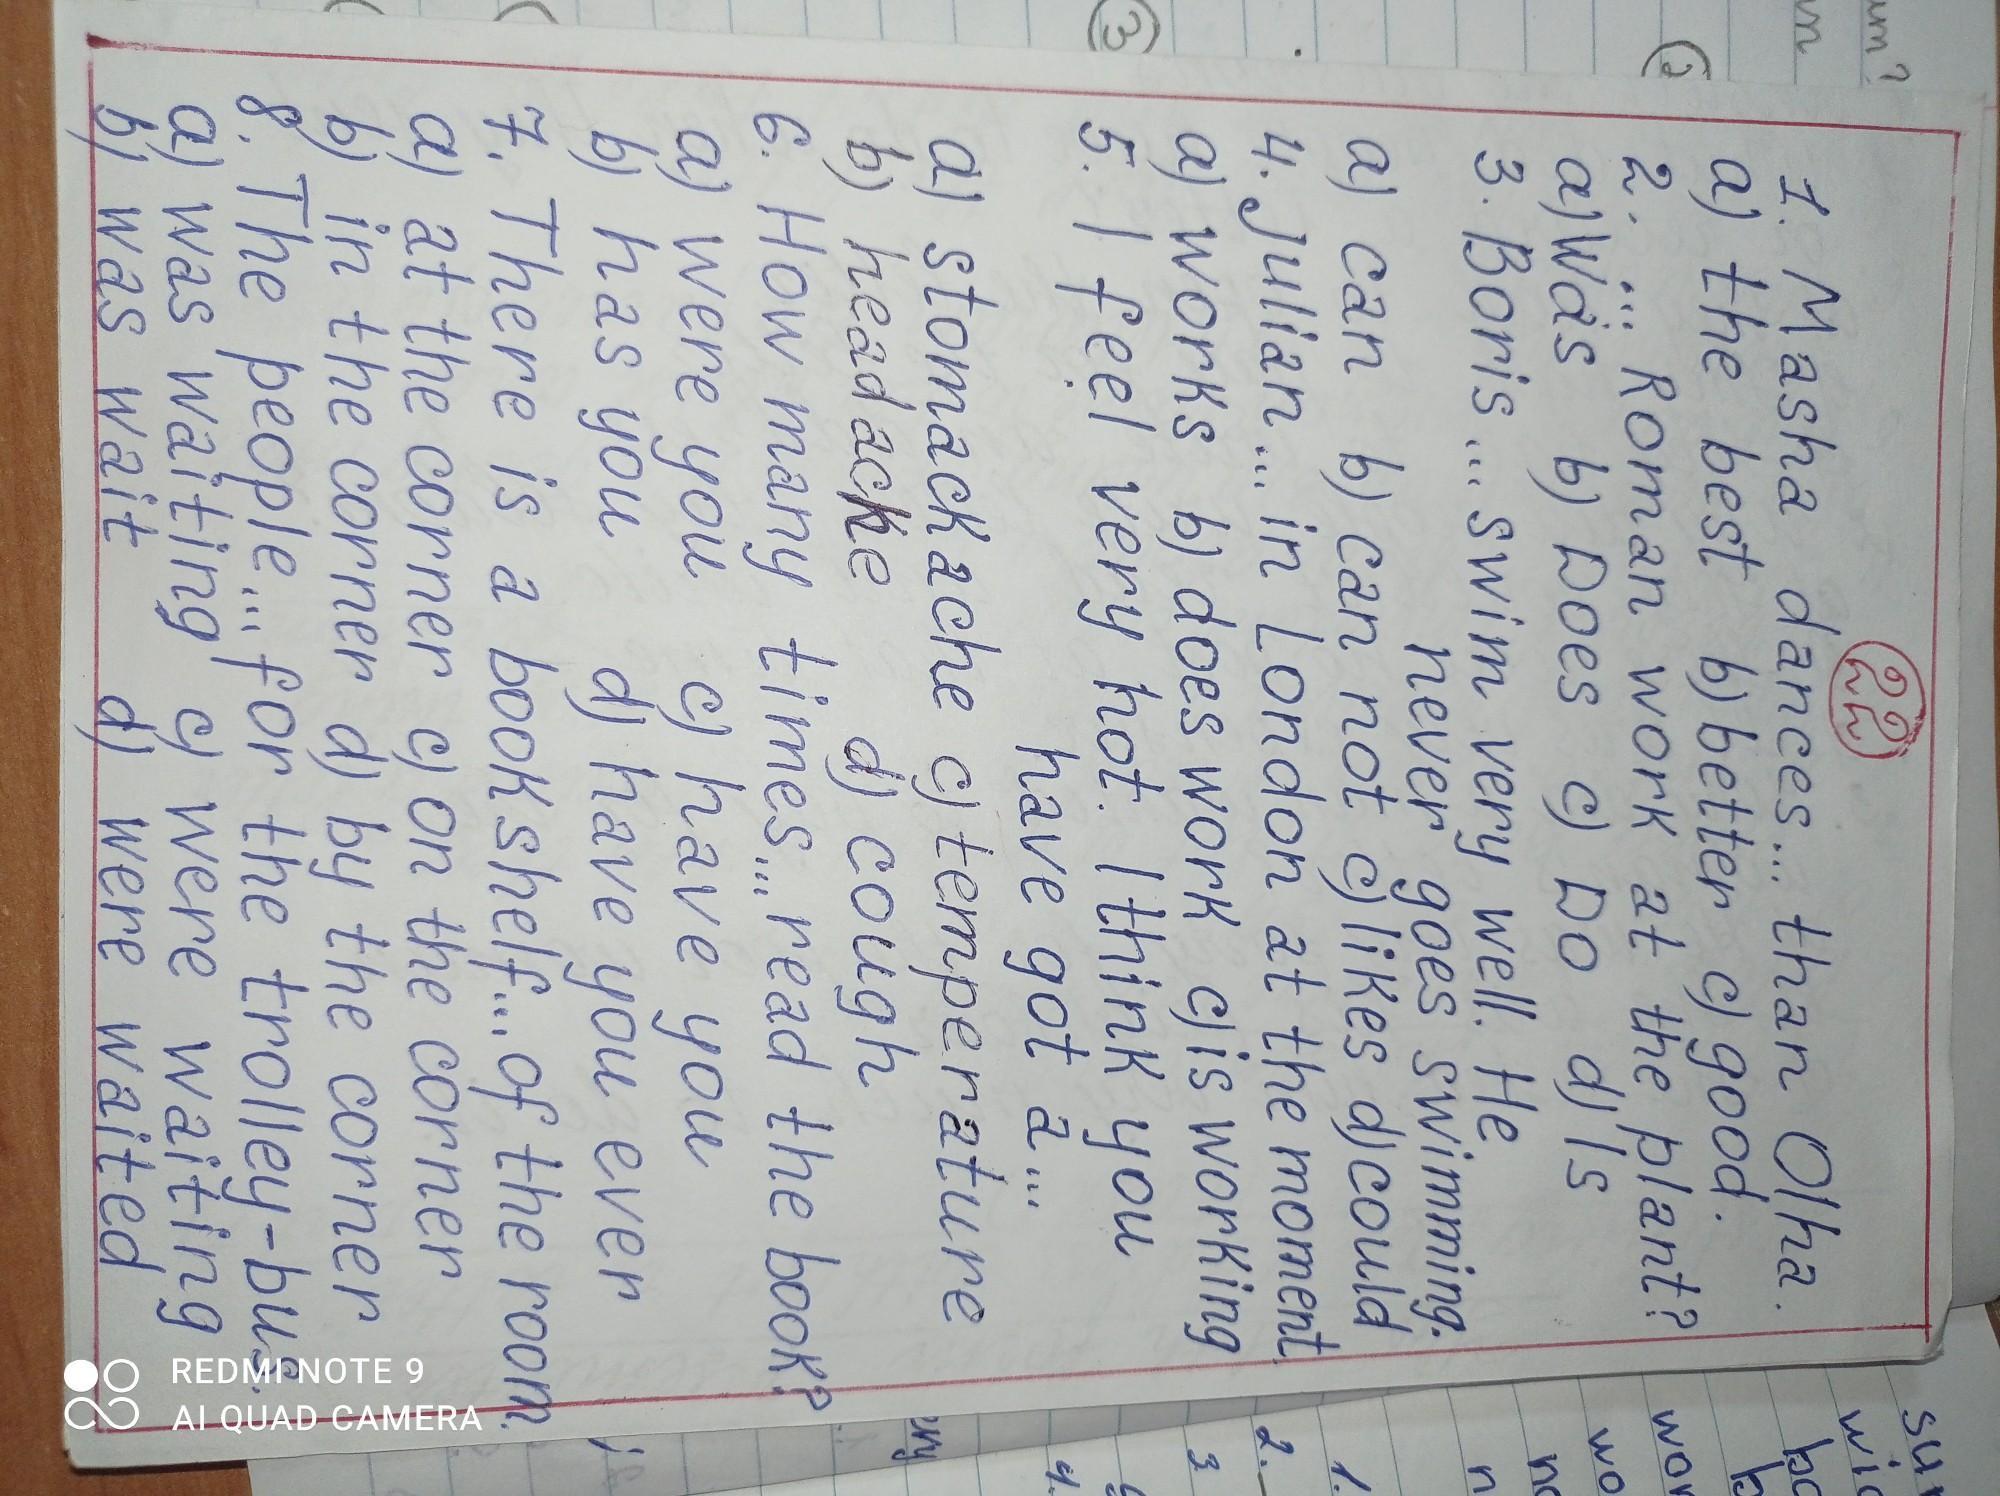 22
1. Masha dances... than Olha.
a) the best b) better c) good.
2. ... Roman work at the plant?
a) Was b) Does c) Do d) Is
3. Boris... swim very well. He
never goes swimming.
a) can b) can not c) likes d) could
4. Julian... in London at the moment.
a) works b) does work c) is working
5. I feel very hot. I think you
have got a...
a) stomackache c) temperature
b) headache d) cough
6. How many times... read the book?
a) were you c) have you
b) has you d) have you ever
7. There is a bookshelf... of the room.
a) at the corner c) on the corner
b) in the corner d) by the corner
8. The people... for the trolley-bus.
a) was waiting c) were waiting
b) was wait d) were waited
REDMI NOTE 9
AI QUAD CAMERA
3
2
1.
2.
3
4.